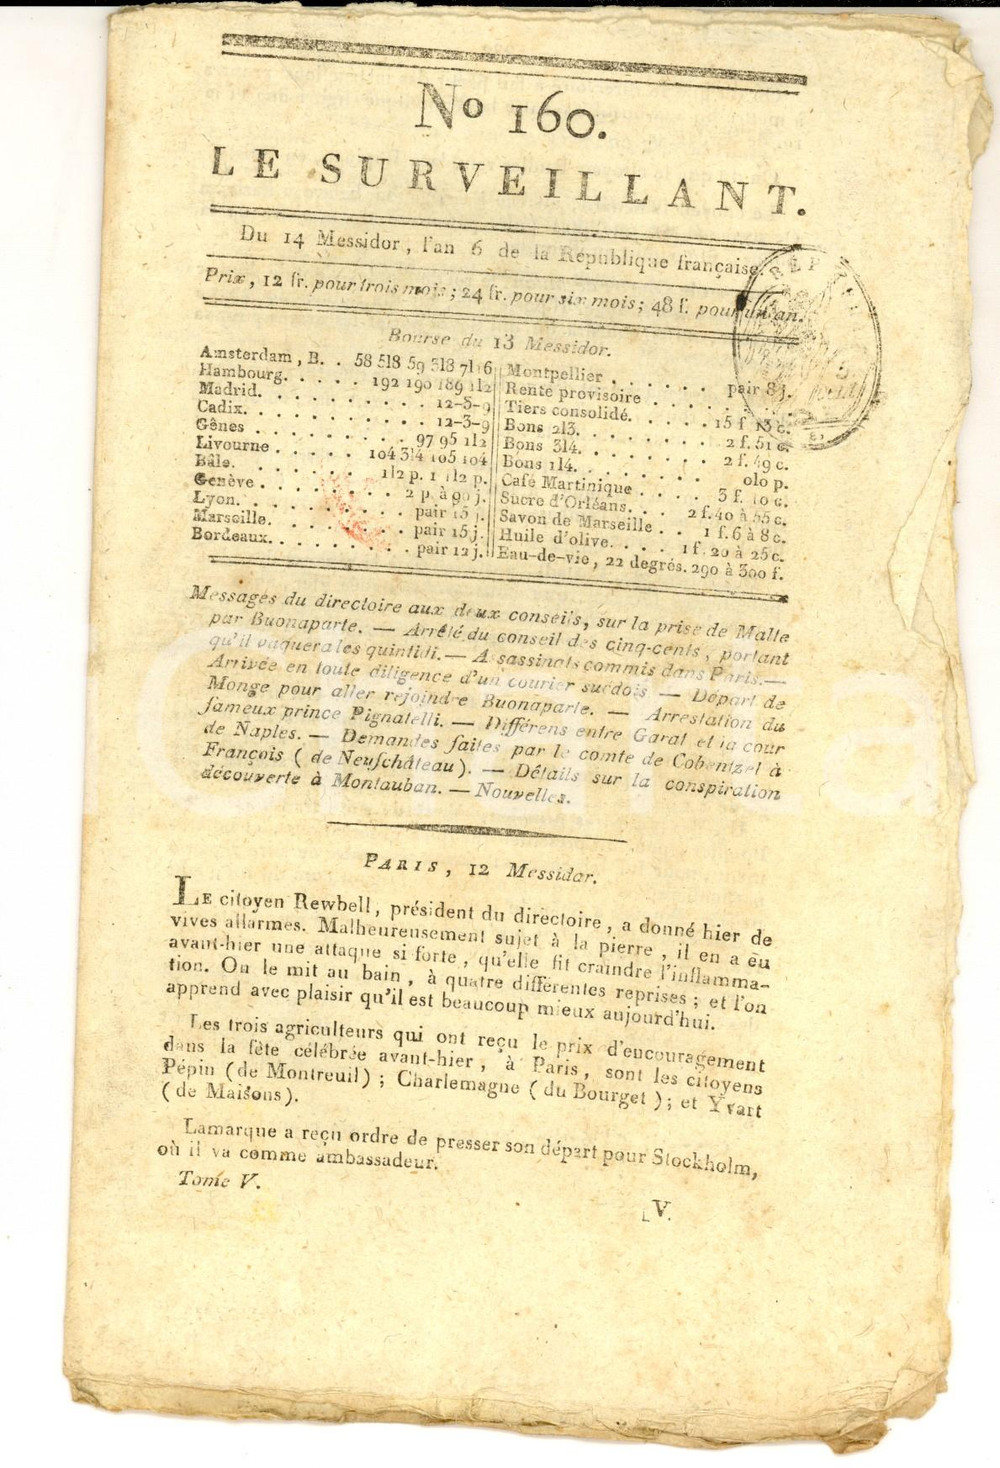 No 160.
LE SURVEILLANT.
Du 14 Messidor, l'an 6 de la République française.
Prix, 12 fr. pour trois mois; 24 fr. pour six mois; 48 f. pour un an.
Bourse du 13 Messidor.
Amsterdam, B. . 58 518 59 318 7116
Hambourg. . . . . 192 190 189 112
Madrid. . . . . . . . . 12-8-9
Cadix. . . . . . . . . . 12-3-9
Gênes . . . . . . . . 97 95 112
Livourne . . . . . 104 314 105 104
Bâle. . . . . . . 112 p. 1 112 p.
Genève . . . . . . . 2 p. à 90 j.
Lyon. . . . . . . . . pair 15 j.
Marseille. . . . . . . pair 15 j.
Bordeaux. . . . . . . . pair 12 j.
Montpellier . . . . . . pair 8 j.
Rente provisoire . . . . . . .
Tiers consolidé. . . . . 15 f 13 c.
Bons 213. . . . . . . . 2 f. 51 c.
Bons 314. . . . . . . . 2 f. 49 c.
Bons 114. . . . . . . . 010 p.
Café Martinique . . . . 3 f. 10 c.
Sucre d'Orléans. . . 2 f. 40 à 55 c.
Savon de Marseille . . 1 f. 6 à 8 c.
Huile d'olive. . . . 1 f. 20 à 25 c.
Eau-de-vie, 22 degrés. 290 à 300 f.
Messages du directoire aux deux conseils, sur la prise de Malte
par Buonaparte. — Arrêté du conseil des cinq-cents, portant
qu'il vaquera les quintidi. — Assassinats commis dans Paris. —
Arrivée en toute diligence d'un courier suédois — Départ de
Monge pour aller rejoindre Buonaparte. — Arrestation du
fameux prince Pignatelli. — Différens entre Garat et la cour
de Naples. — Demandes faites par le comte de Cobentzel à
François ( de Neufchâteau ). — Détails sur la conspiration
découverte à Montauban. — Nouvelles.
PARIS, 12 Messidar.
LE citoyen Rewbell, président du directoire, a donné hier de
vives allarmes. Malheureusement sujet à la pierre, il en a eu
avant-hier une attaque si forte, qu'elle fit craindre l'inflamma-
tion. On le mit au bain, à quatre différentes reprises; et l'on
apprend avec plaisir qu'il est beaucoup mieux aujourd'hui.
Les trois agriculteurs qui ont reçu le prix d'encouragement
dans la fête célébrée avant-hier, à Paris, sont les citoyens
Pépin (de Montreuil) ; Charlemagne ( du Bourget ) ; et Yvart
( de Maisons).
Lamarque a reçu ordre de presser son départ pour Stockholm,
où il va comme ambassadeur.
Tome V.
V.